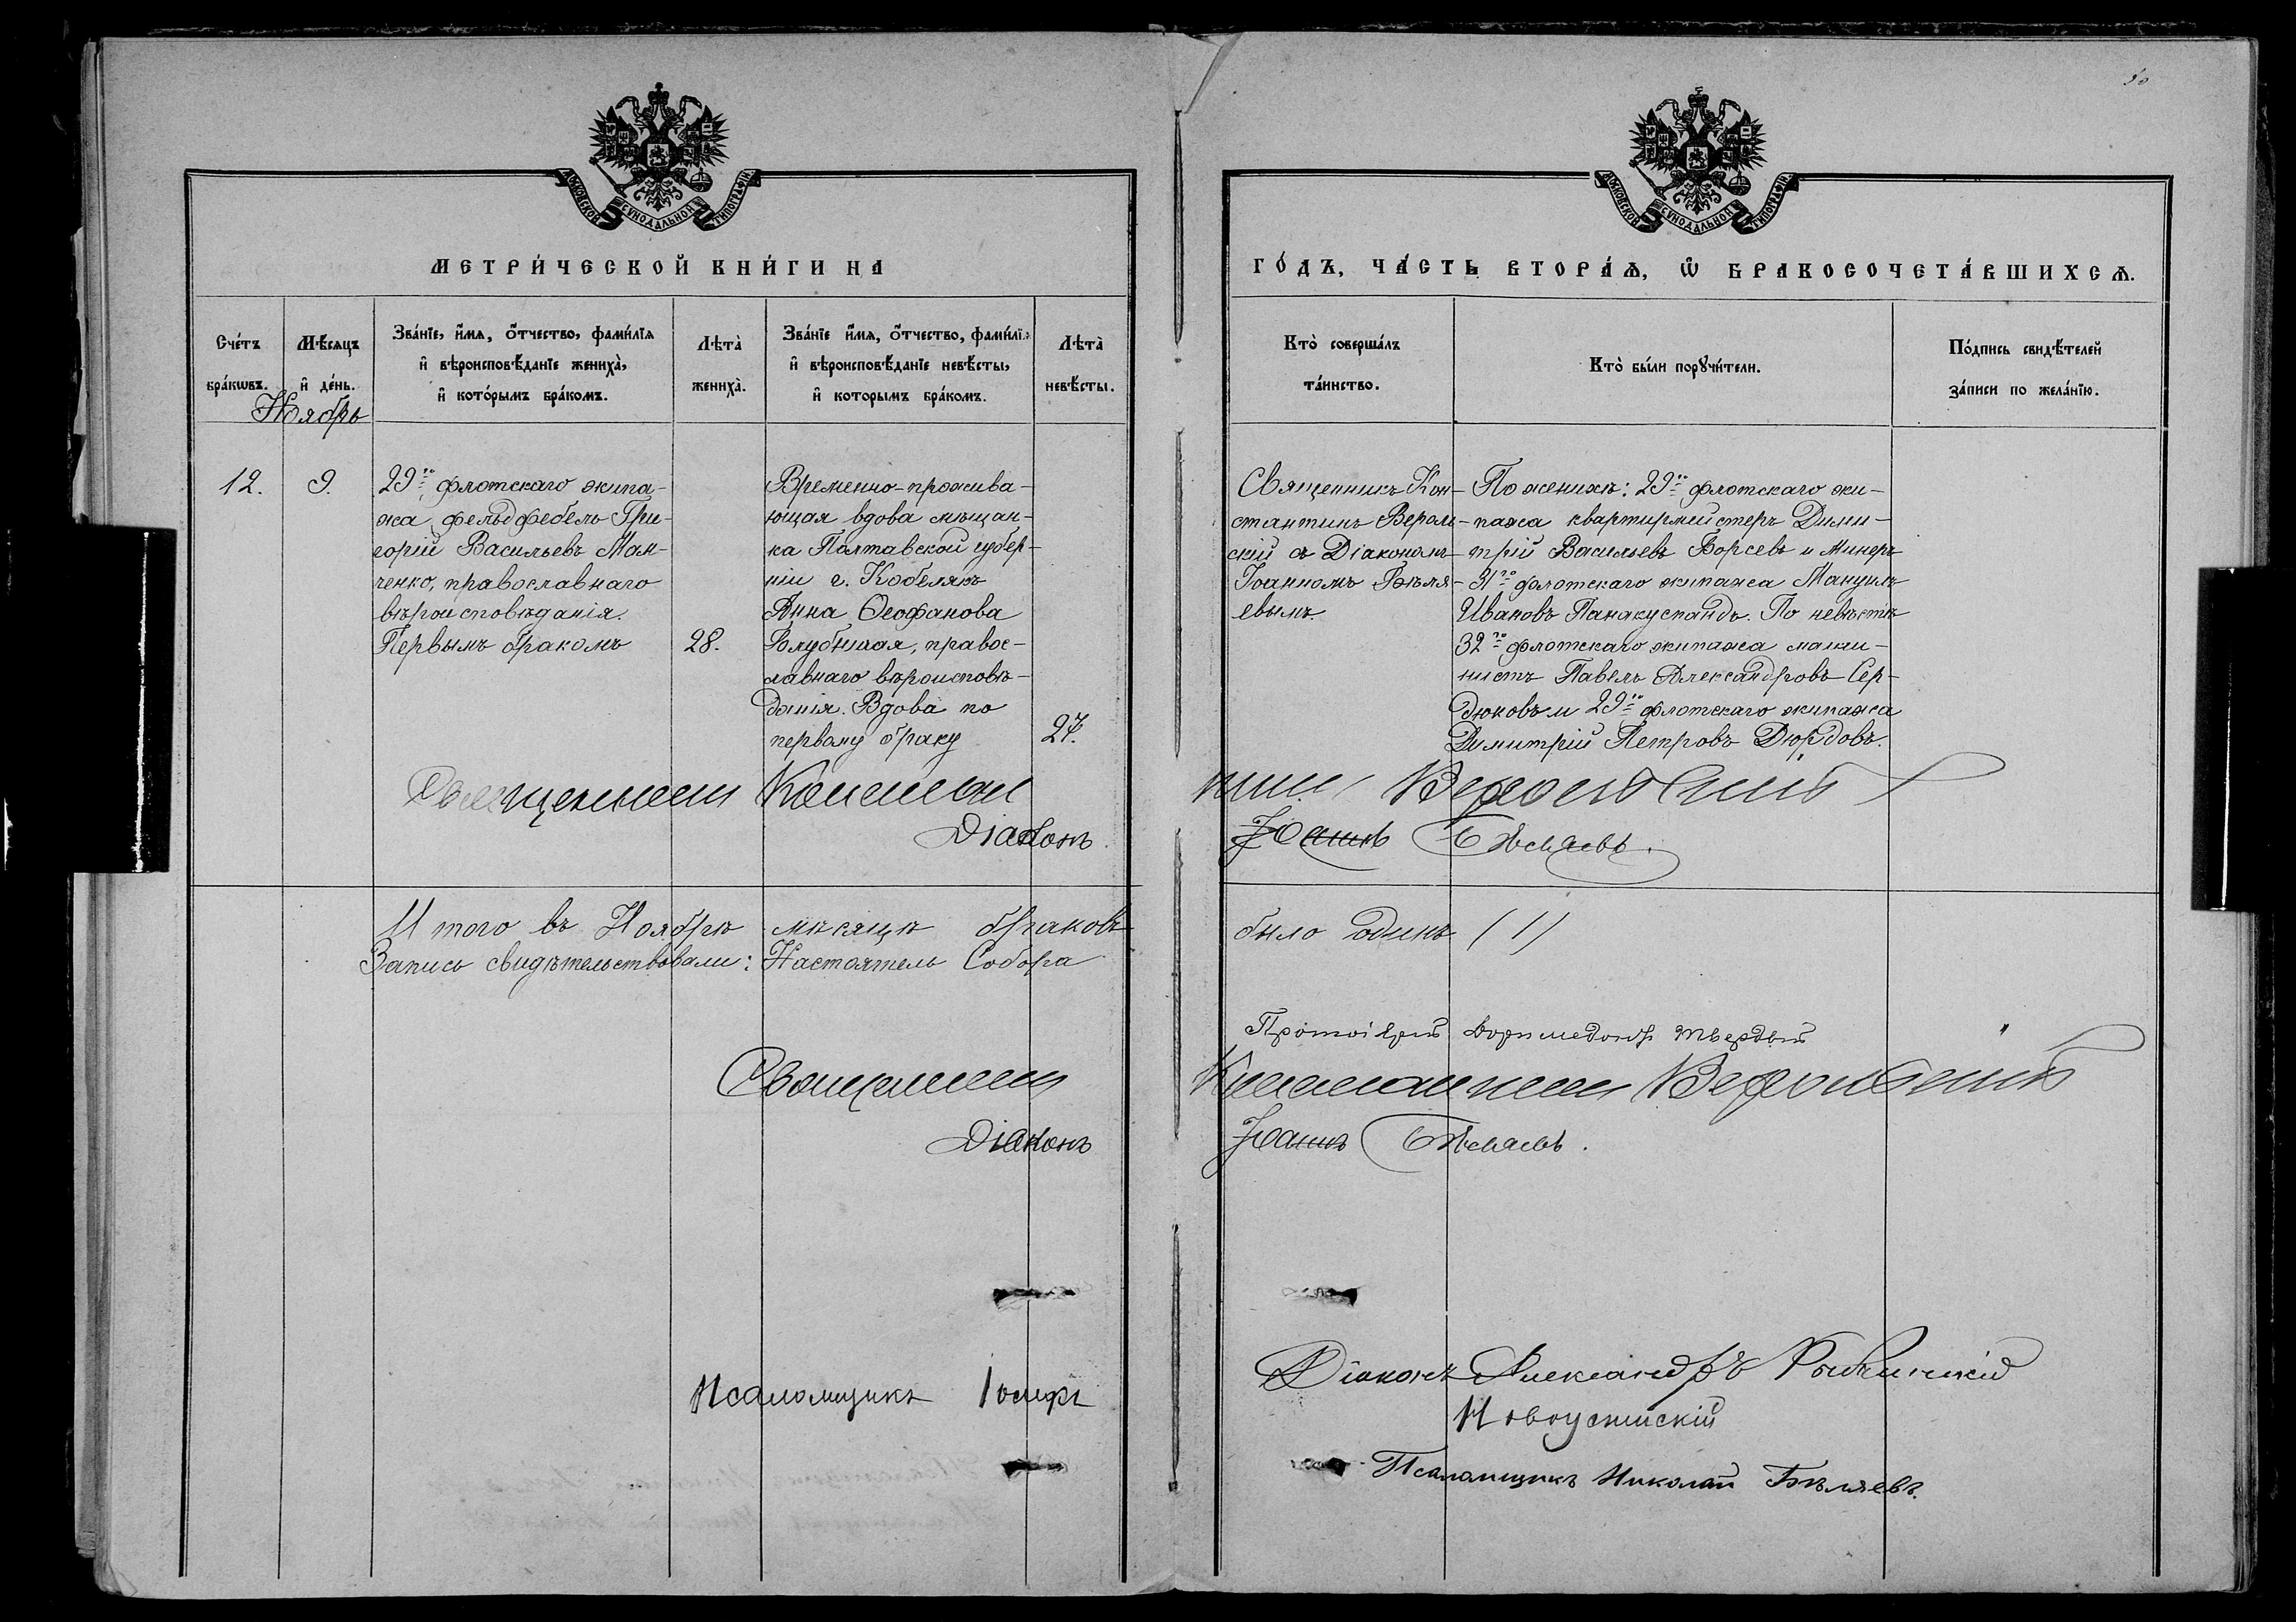 50
МОСКОВСКОЙ СУНОДАЛЬНОЙ ТИПОГРАФІИ.
МОСКОВСКОЙ СУНОДАЛЬНОЙ ТИПОГРАФІИ.
МЕТРИ́ЧЕСКОЙ КНИ́ГИ НА
ГО́ДЪ, ЧА́СТЬ ВТОРА́Ѧ, Ѽ БРАКОСОЧЕТА́ВШИХСѦ.
Сче́тъ
бра́кѡвъ.
Мѣ́сяцъ
и҆ де́нь.
Зва́нїе, и҆́мя, ѻ҆́тчество, фами́лїя
и҆ вѣроисповѣ́данїе жениха̀,
и҆ кото́рымъ бра́комъ.
Лѣта̀
жениха̀.
Зва́нїе и҆́мя, ѻ҆́тчество, фами́лїя
и҆ вѣроисповѣ́данїе невѣ́сты,
и҆ которымъ бра́комъ.
Лѣта̀
невѣ́сты.
Кто̀ соверша́лъ
та́инство.
Кто̀ бы́ли порꙋчи́тели.
По́дпись свидѣ́телей
за́писи по жела́нїю.
Ноябрь
12.
9.
29го флотскаго экипа-
жа фельдфебель Гри-
горій Васильевъ Ман-
ченко, православнаго
вѣроисповѣданія.
Первымъ бракомъ
28.
Временно-прожива-
ющая вдова мѣщан-
ка Полтавской губер-
ніи г. Кобелякъ
Анна Ѳеофанова
Голубничая, правос-
лавнаго вѣроисповѣ-
данія. Вдова по
первому браку
27.
Священникъ Кон-
стантинъ Вероль-
скій съ Діакономъ
Іоанномъ Бѣля-
евымъ.
По женихѣ: 29го флотскаго эки-
пажа квартирмейстеръ Дими-
трій Васильевъ Борсевъ и Минеръ
31го флотскаго экипажа Мануилъ
Ивановъ Панакустандъ. По невѣстѣ
32го флотскаго экипажа маши-
нистъ Павелъ Александровъ Сер-
дюковъ и 29го флотскаго экипажа
Димитрій Петровъ Дюрдовъ.
Священникъ Константинъ Верольскій
Діаконъ Іоаннъ Бѣляевъ.
Итого въ Ноябрѣ мѣсяцѣ браковъ было одинъ (1)
Запись свидѣтельствовали: Настоятель Собора
Протоіерей Доримедонтъ Твердый
Священникъ Константинъ Верольскій
Діаконъ Іоаннъ Бѣляевъ.
Діаконъ Александръ
Псаломщикъ Іосифъ Новоуспискій
Псаломщикъ Николай Бѣляевъ.